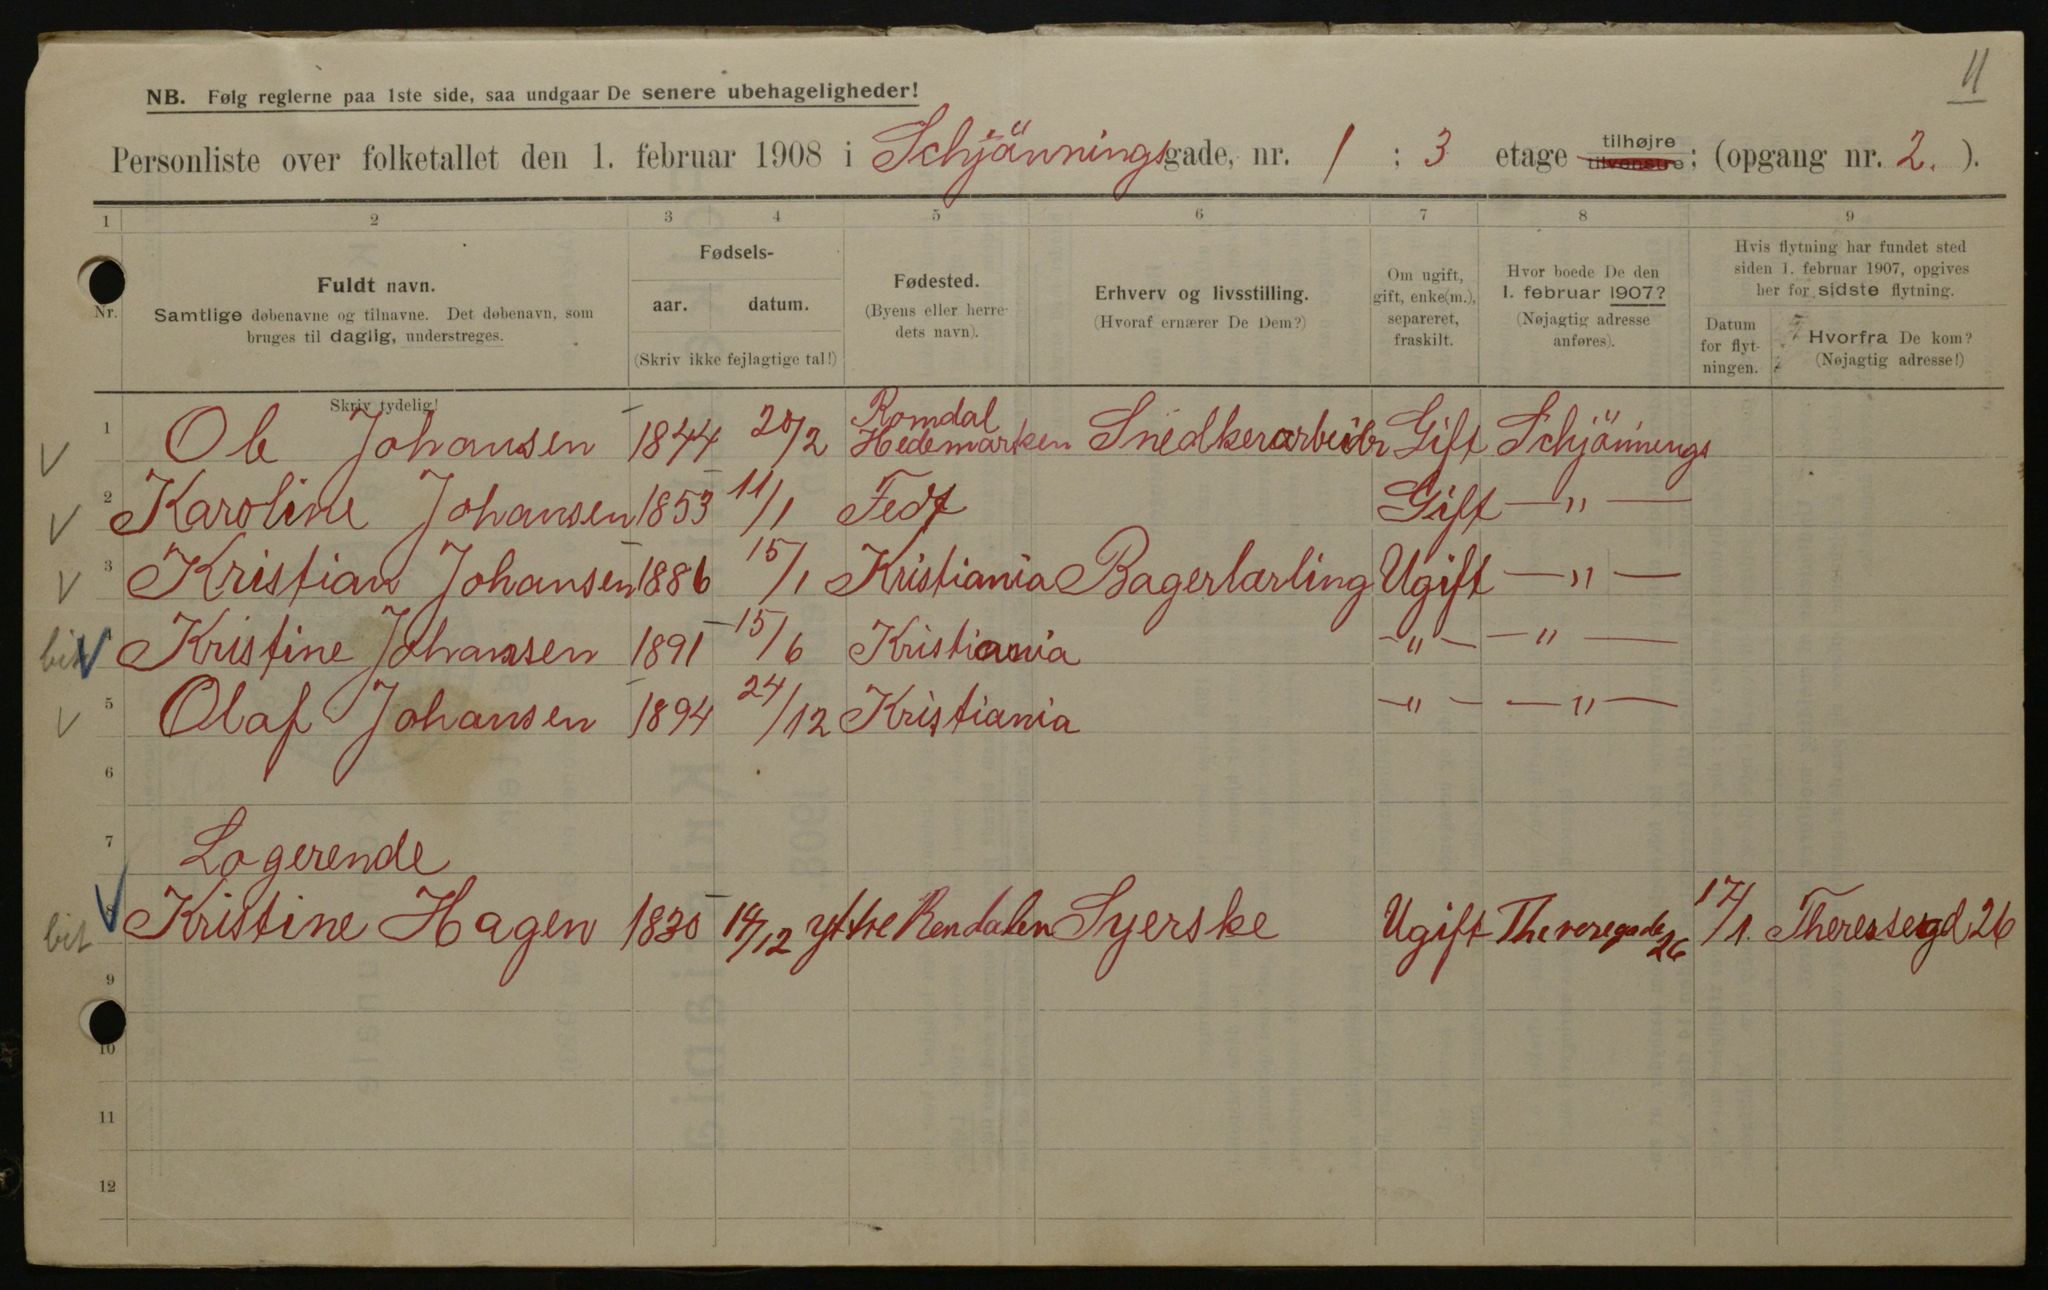 11
NB. Følg reglerne paa 1ste side, saa undgaar De senere ubehageligheder!
Personliste over folketallet den 1. februar 1908 i Schjänningsgade, nr. 1 : 3 etage tilhøjre tilvenstre; (opgang nr. 2. ).
1 2 3 4 5 6 7 8 9
Nr.
Fuldt navn.
Samtlige døbenavne og tilnavne. Det døbenavn, som
bruges til daglig, understreges.
Skriv tydelig!
Fødsels-
aar. datum.
(Skriv ikke fejlagtige tal!)
Fødested.
(Byens eller herre-
dets navn).
Erhverv og livsstilling.
(Hvoraf ernærer De Dem?)
Om ugift,
gift, enke(m.),
separeret,
fraskilt.
Hvor boede De den
1. februar 1907?
(Nøjagtig adresse
anføres).
Hvis flytning har fundet sted
siden 1. februar 1907, opgives
her for sidste flytning.
Datum
for flyt-
ningen.
Hvorfra De kom?
(Nøjagtig adresse!)
1 Ole Johansen 1844 20/2 Romdal Hedemarken Snedkerarbeider Gift Schjännings
2 Karoline Johansen 1853 11/1 Gift — " —
3 Kristian Johansen 1886 15/1 Kristiania Bagerlærling Ugift — " —
4 Kristine Johansen 1891 15/6 Kristiania — " — — " —
5 Olaf Johansen 1894 24/12 Kristiania — " — — " —
6
7 Logerende
8 Kristine Hagen 1830 /12 yttre Rendalen Syerske Ugift 26 17/1. Theresesgd 26
9
10
11
12